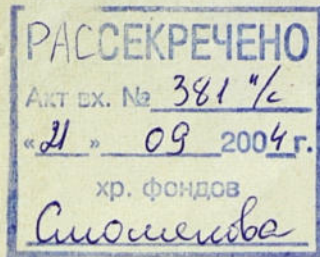 РАССЕКРЕЧЕНО
Акт вх. № 381 н/с
«21» 09 2004 г.
хр. фондов